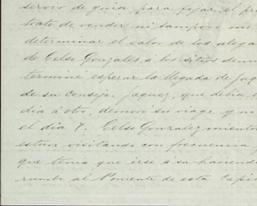 servir de guia para fijar el pre
trato de vender ni tampoco
determinar el valor de los alega
de Celso Gonzales a los sitios denun
terminé esperar la llegada de Jaq
de su consejo. Jaquez, que debia
dia á otro, demoró su viage, y
el dia 7. Celso Gonzalez mientras
estuvo visitando con frecuencia
que tenia que irse á su hacienda
rumbo al Poniente de esta Capi